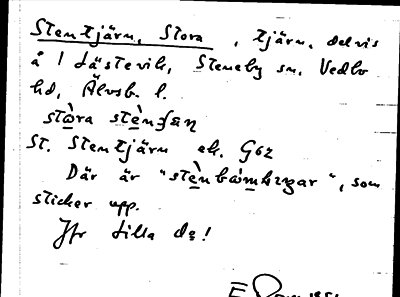 Stentjärn, Stora, tjärn, delvis
å / Låstevik, Steneby sn. Vedbo
hd, Älvsb. l.
stòra stèn
St. Stentjärn ek. G62
Där är "stènbåmkzgar", som
sticker upp.
Jfr Lilla ds!